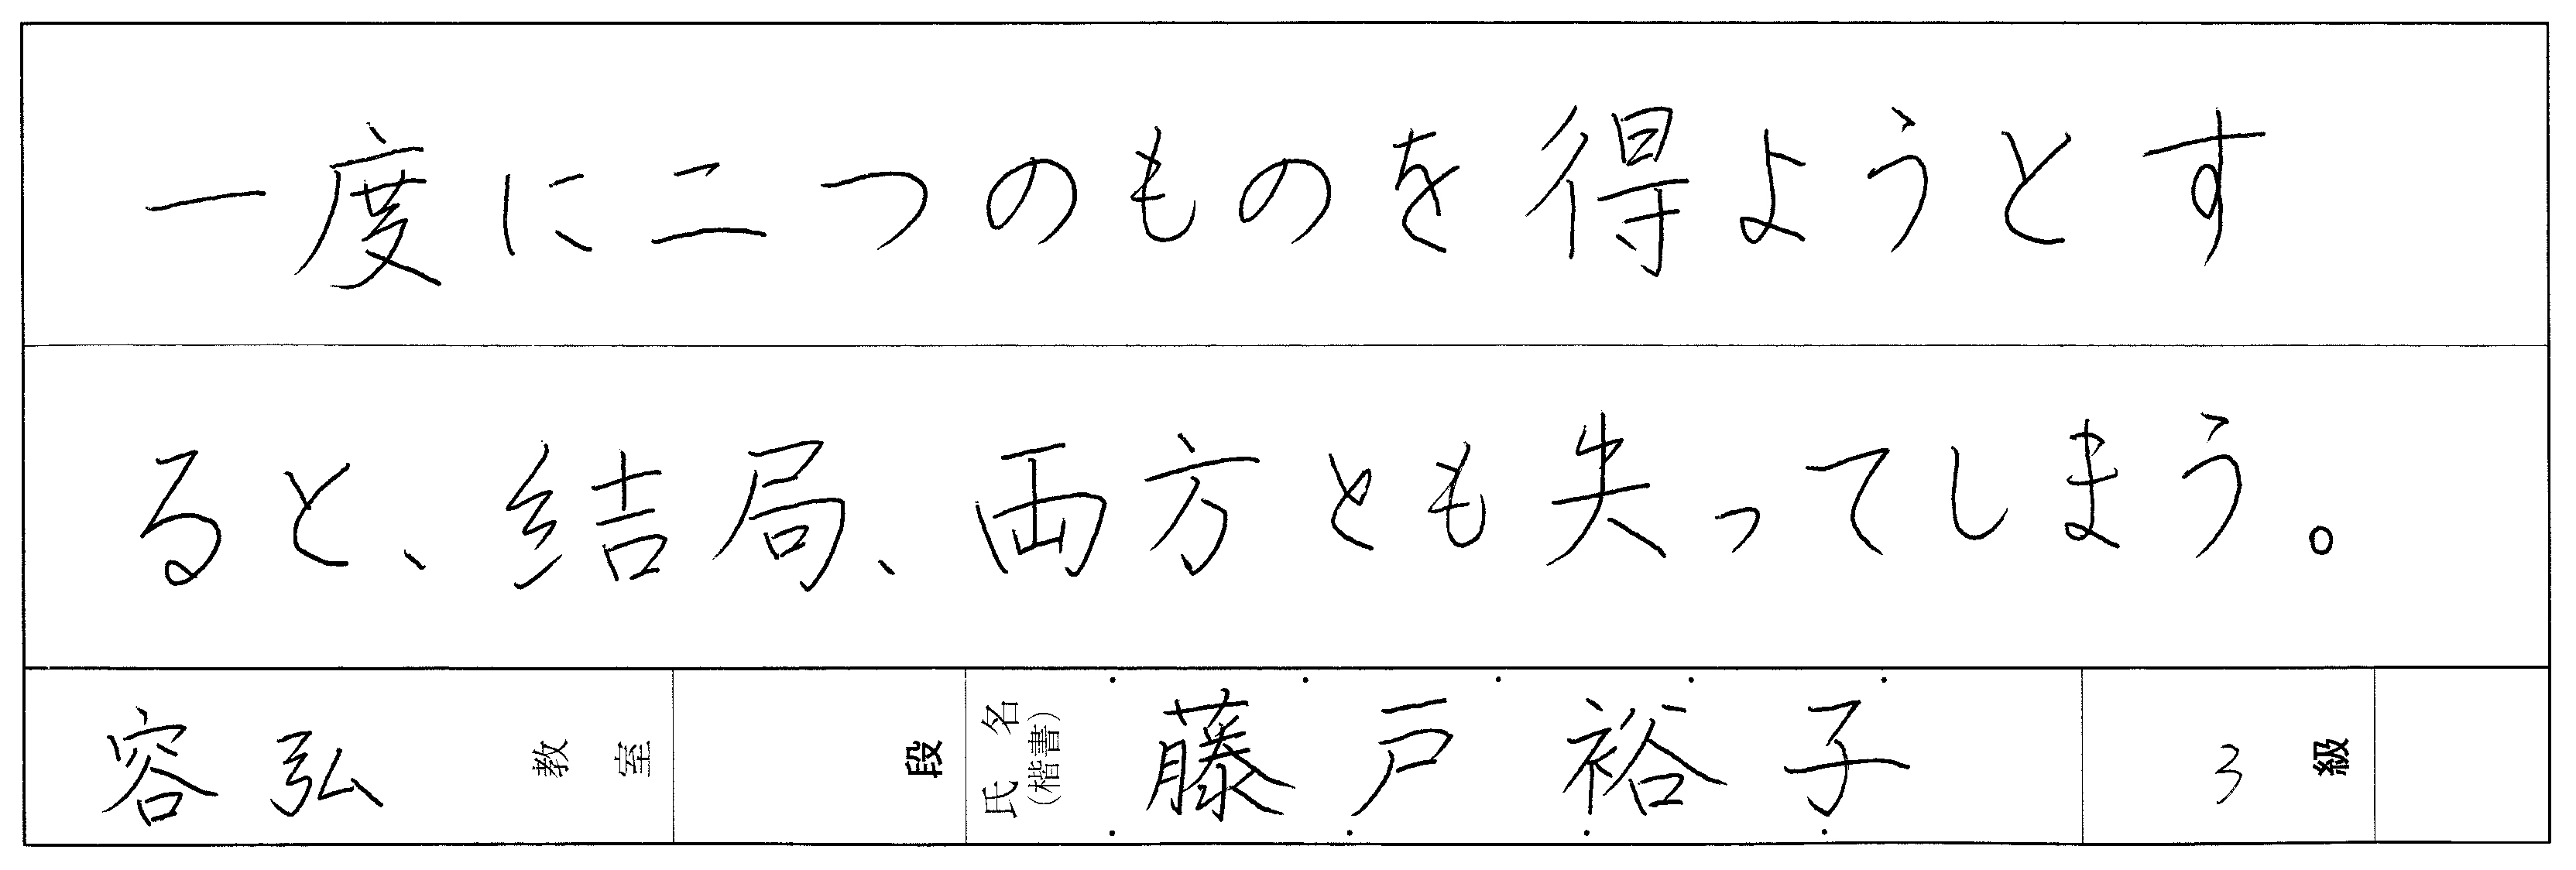 一度に二つのものを得ようとす
ると、結局、両方とも失ってしまう。
容弘 教室 段 氏名(楷書) 藤戸裕子 3級